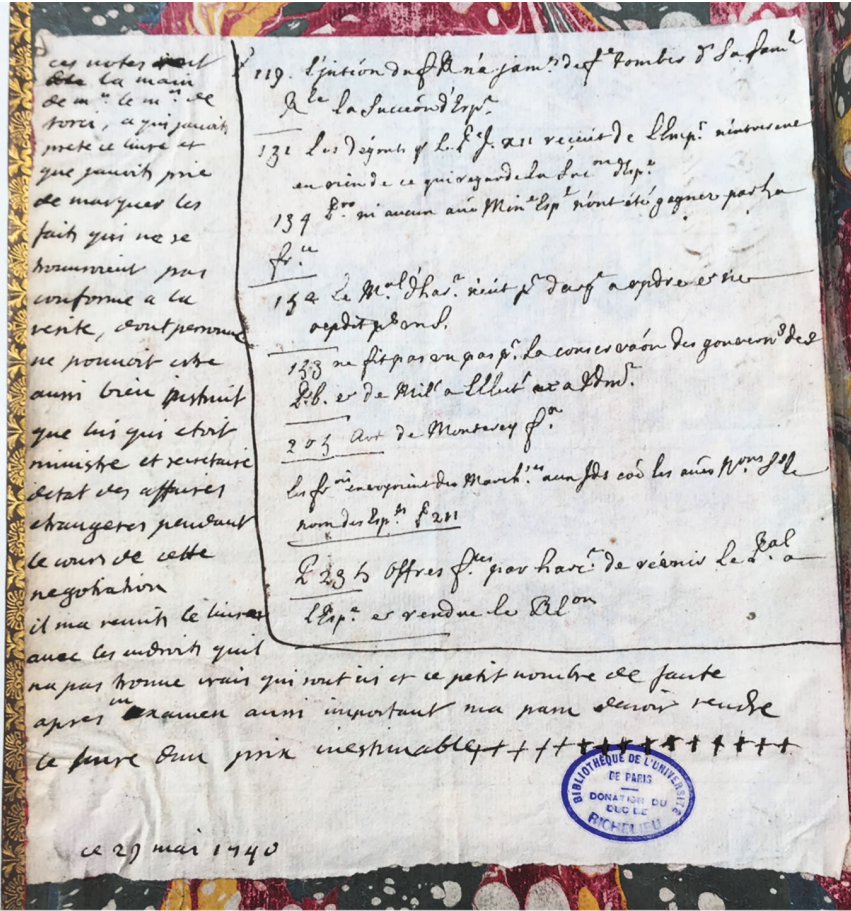 ces notes sont
de la main
de mr. le mis. de
torci, a qui javois
preté ce livre et
que javois prié
de marquer les
faits qui ne se
trouveroient pas
conforme a la
verité, dont personne
ne pouvoit estre
aussi bien instruit
que lui qui etoit
ministre et secretaire
detat des affaires
etrangeres pendant
le cours de cette
negotiation
il ma remis le livre
avec les endroits quil
na pas trouvé vrais qui sont ici et ce petit nombre de faute
apres un examen aussi important ma paru devoir rendre
ce livre dun prix inestimable
ce 29 mai 1740
119. du R n'a jam.s de tomber d. sa fam.le
R.le la Succeõn d'Esp.e
131 Les dégouts q. le P.e J. reçeut de l'Emp.r n'entrerent
en rien de ce qui regarde la Suc.on d'Esp.e
134 ni aucun autre Min.e Esp.l n'ont été gagnez par la
fr.ce
152 Le M.al d'har.t n'eut p.t d'arg.t a repdre et n'en
repdit p.t
153 ne fit pas un pas p.r la conservaõn des gouvern.s des
P.b. et de Mil.
203 de Monterey
Les fr.ois envoyoient des March.ses aux Ids coe les autres
nom des Esp.ls P. 211
P. 235 Offres f.tes par harc.t de réunir le P.al a
l'Esp.e et rendre le
BIBLIOTHÈQUE DE L'UNIVERSITÉ
DE PARIS
DONATION DU
DUC DE
RICHELIEU